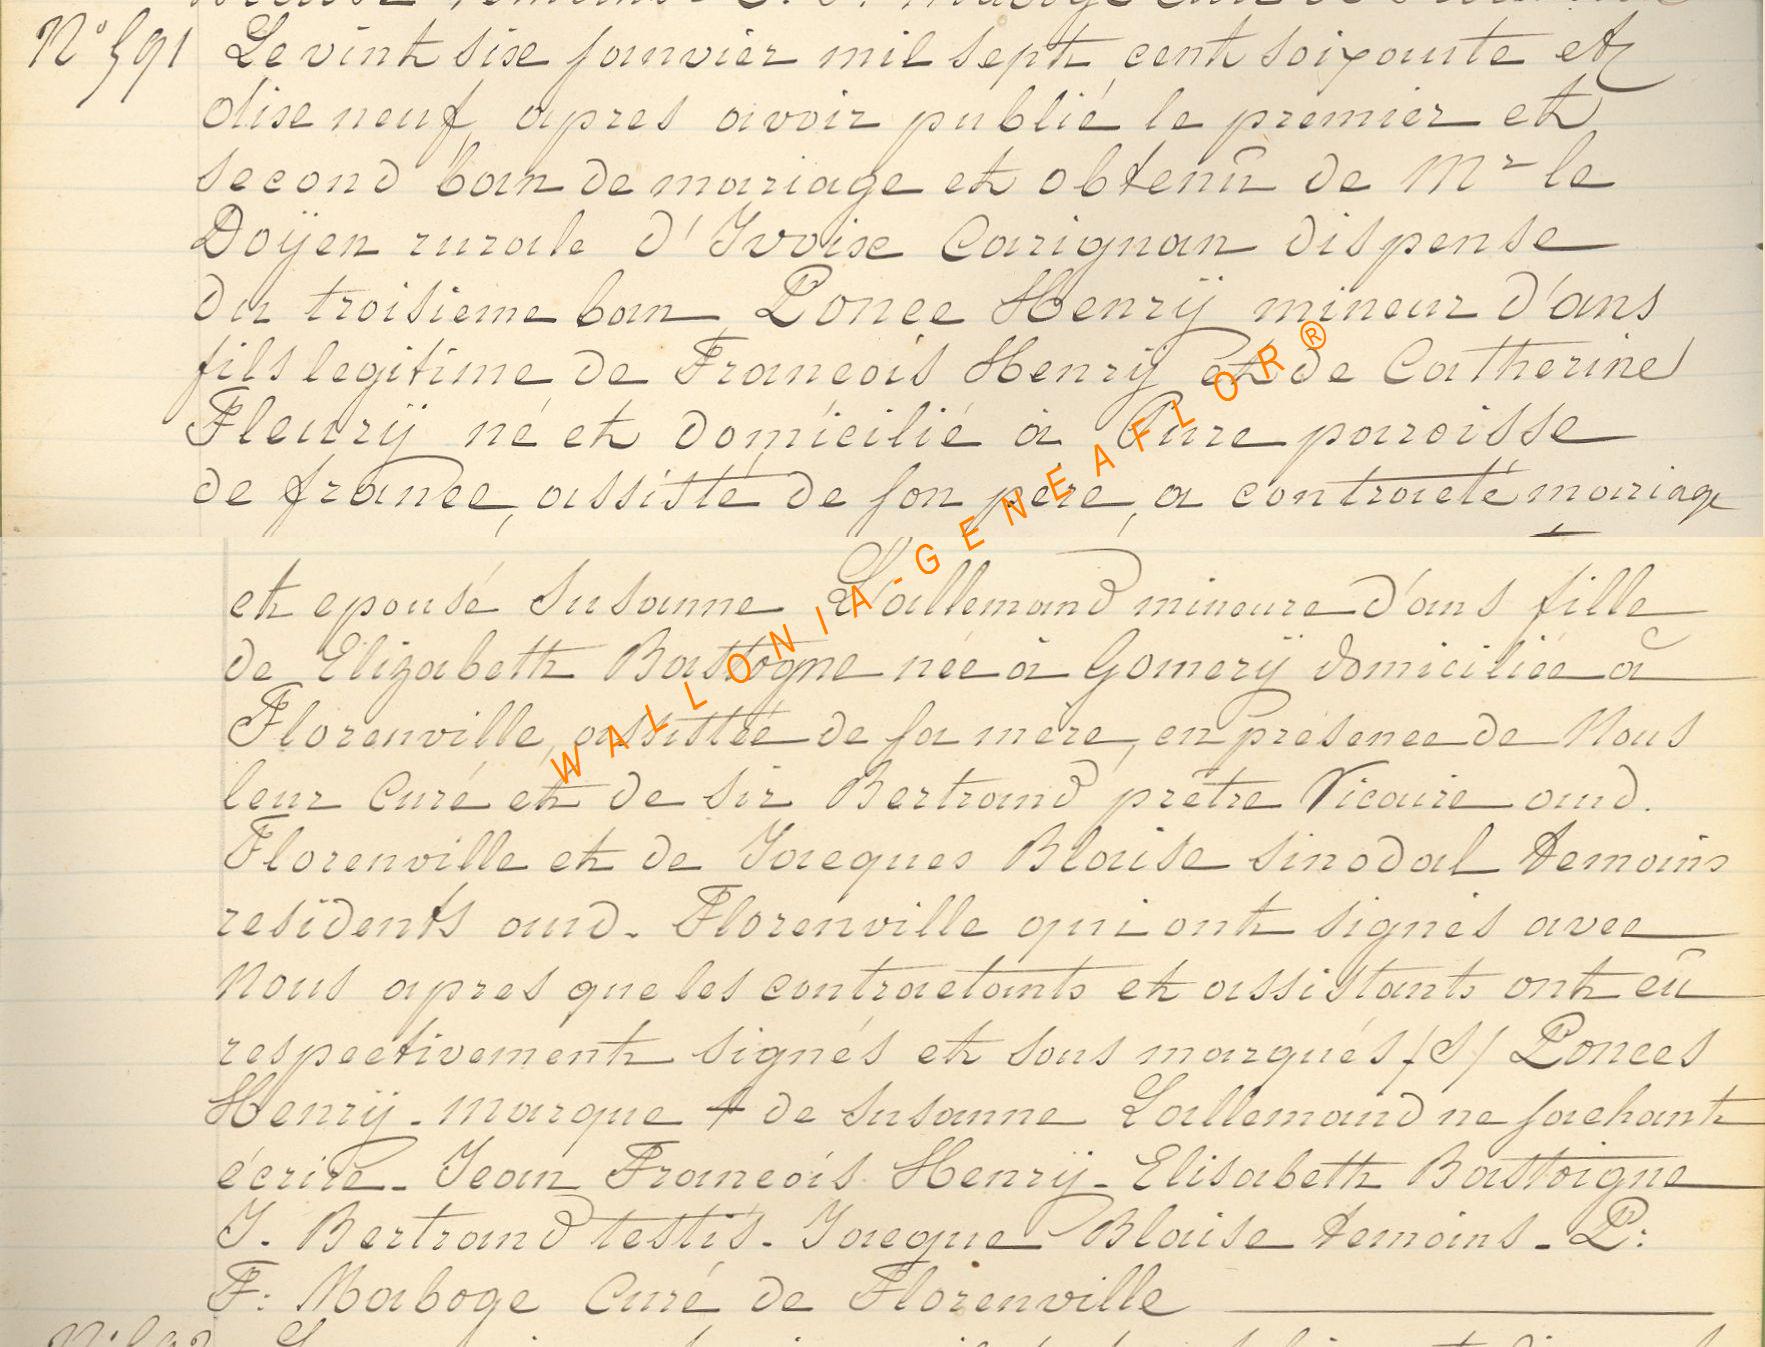 N° 591 Le vint six janvier mil sept cent soixante et
dixe neuf, apres avoir publié le premier et
second ban de mariage et obtenû de Mr le
Doÿen rurale d'Yvoix Carignan dispense
du troisieme ban, Ponce Henrÿ mineur d'ans
fils legitime de Francois Henrÿ et de Catherine
Fleurÿ né et domicilié à Pure paroisse
de france, assisté de son pere, a contracté mariage
et epousé Susanne Lallemand mineure d'ans fille
de Elizabeth Bastogne née à Gomerÿ domiciliée à
Florenville, assistée de sa mere, en présence de Nous
leur Curé et de sir Bertrand prêtre Vicaire aud.
Florenville et de Jacques Blaise sinodal temoins
residents aud. Florenville qui ont signés avec
Nous apres que les contractants et assistants ont eû
respectivement signés et sous marqués /S/ Ponces
Henrÿ - marque + de Susanne Lallemand ne sachant
écrire - Jean Francois Henrÿ - Elisabeth Bastoigne
J. Bertrand testis - Jacque Blaise temoins - P:
F: Maboge Curé de Florenville
WALLONIA-GENEAFLOR®